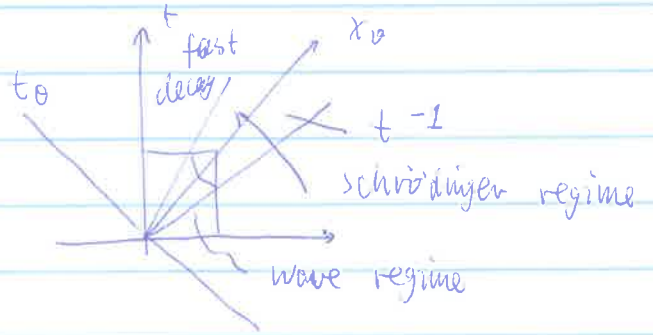 t
x_θ
fast
decay
t_θ
t^{-1}
schrödinger regime
wave regime